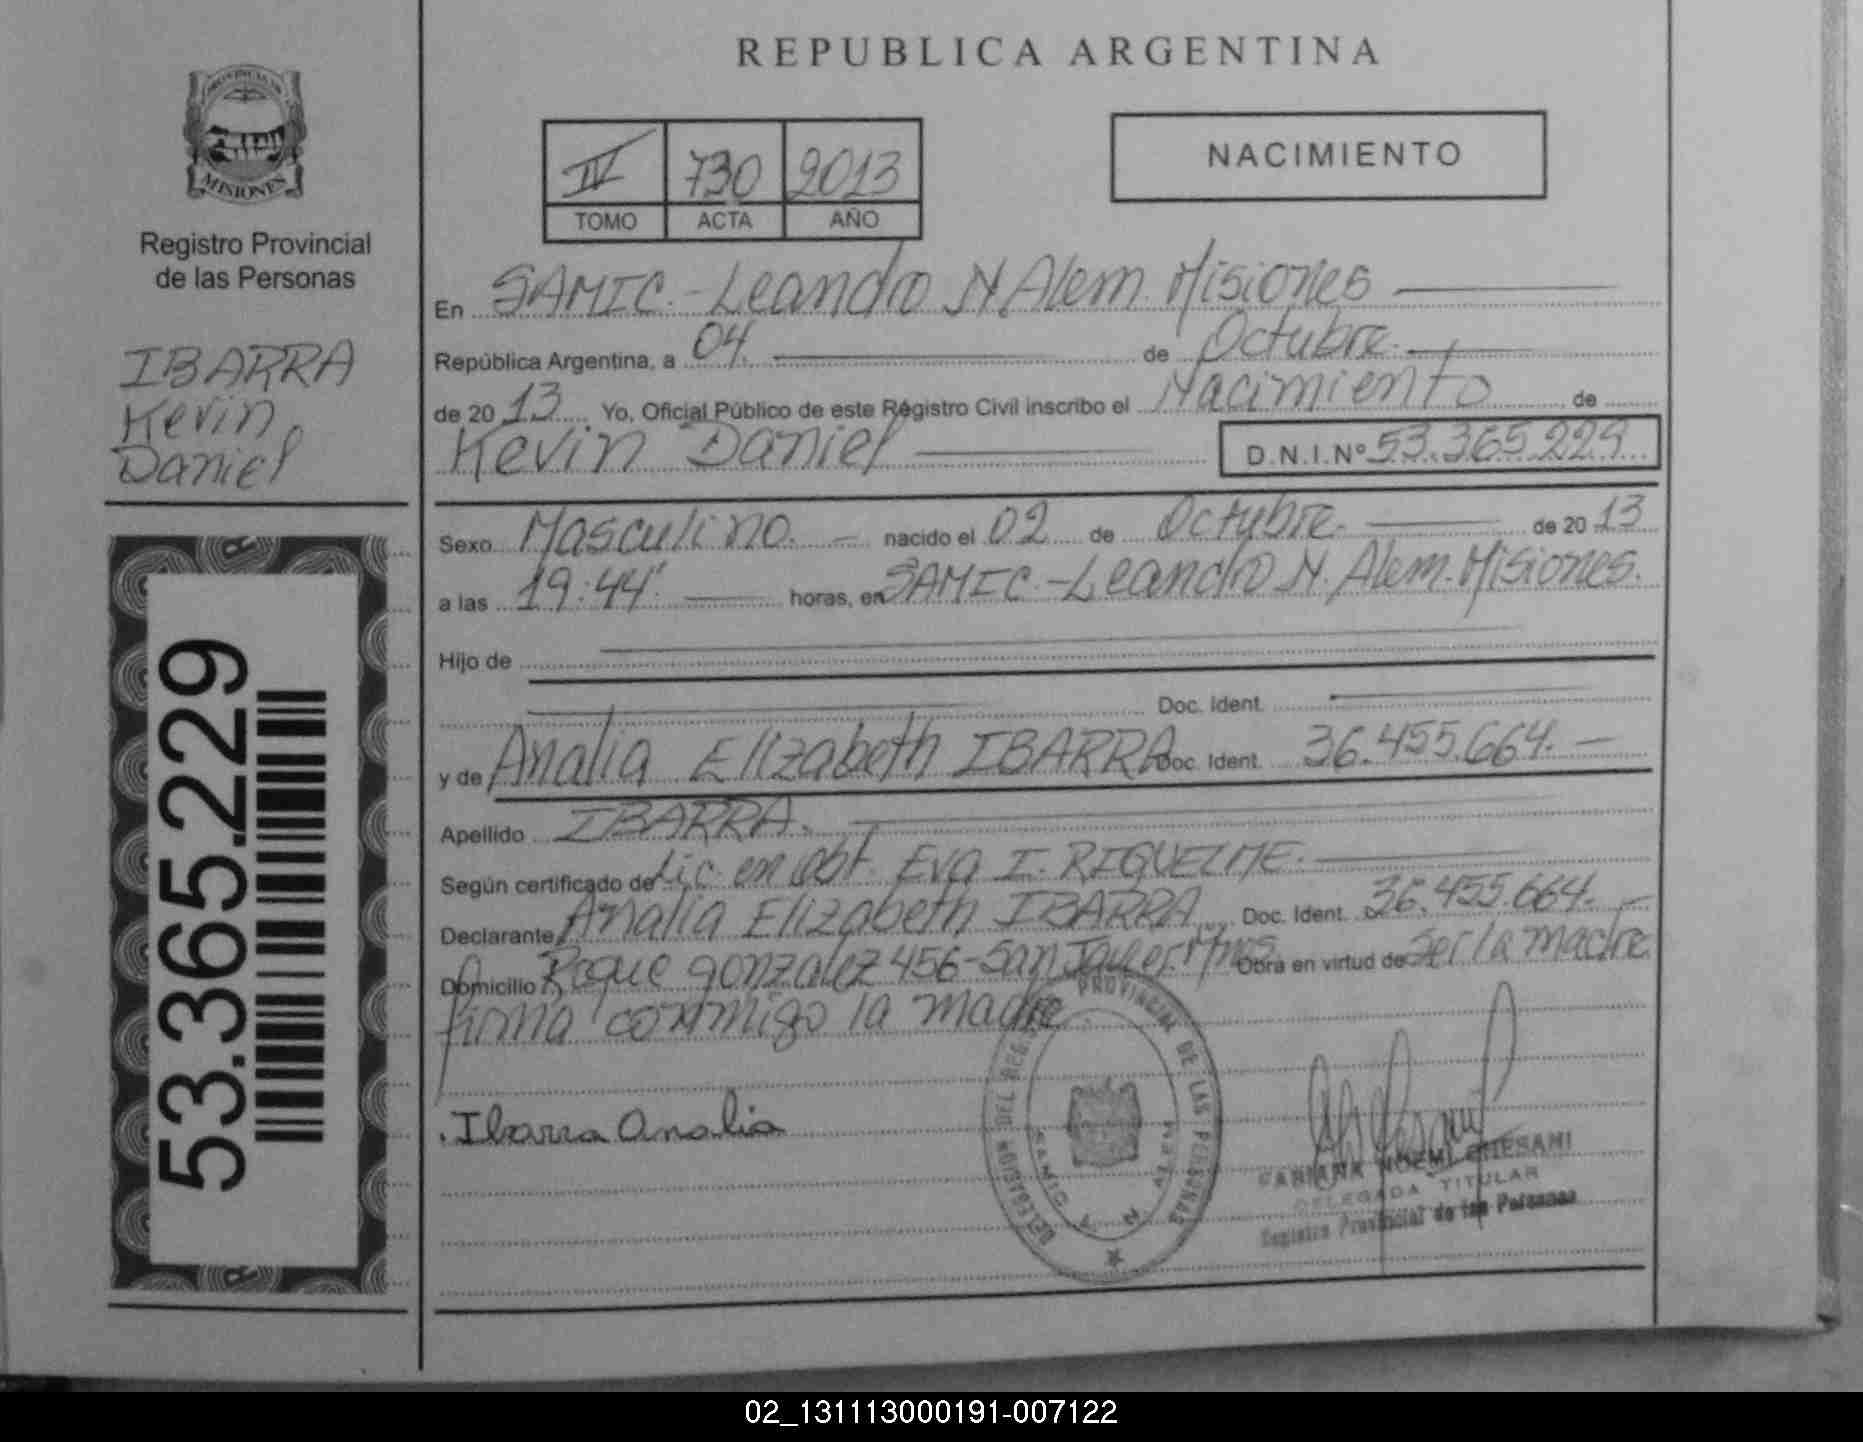 REPUBLICA ARGENTINA
PROVINCIA DE
MISIONES
Registro Provincial
de las Personas
IBARRA
Kevin
Daniel
53.365.229
IV 730 2013
TOMO ACTA AÑO
NACIMIENTO
En SAMIC.-Leandro N. Alem. Misiones
República Argentina, a 04. de Octubre.
de 20 13 Yo, Oficial Público de este Registro Civil inscribo el Nacimiento de
Kevin Daniel D.N.I.Nº 53.365.229
Sexo Masculino. nacido el 02 de Octubre. de 20 13
a las 19:44' horas, en SAMIC.-Leandro N. Alem. Misiones.
Hijo de
Doc. Ident.
y de Analia Elizabeth IBARRA Doc. Ident. 36.455.664.
Apellido IBARRA.
Según certificado de Lic. en obt. Eva I. RIQUELME.
Declarante Analia Elizabeth IBARRA Doc. Ident. 36.455.664.
Domicilio Roque gonzalez 456-San Javier. Mnes. Obra en virtud de Ser la madre
firma conmigo la madre
Ibarra Analia
DELEGACION DEL REGISTRO PROVINCIAL DE LAS PERSONAS
FABIANA NOEMI
DELEGADA TITULAR
Registro Provincial de las Personas
02_131113000191-007122